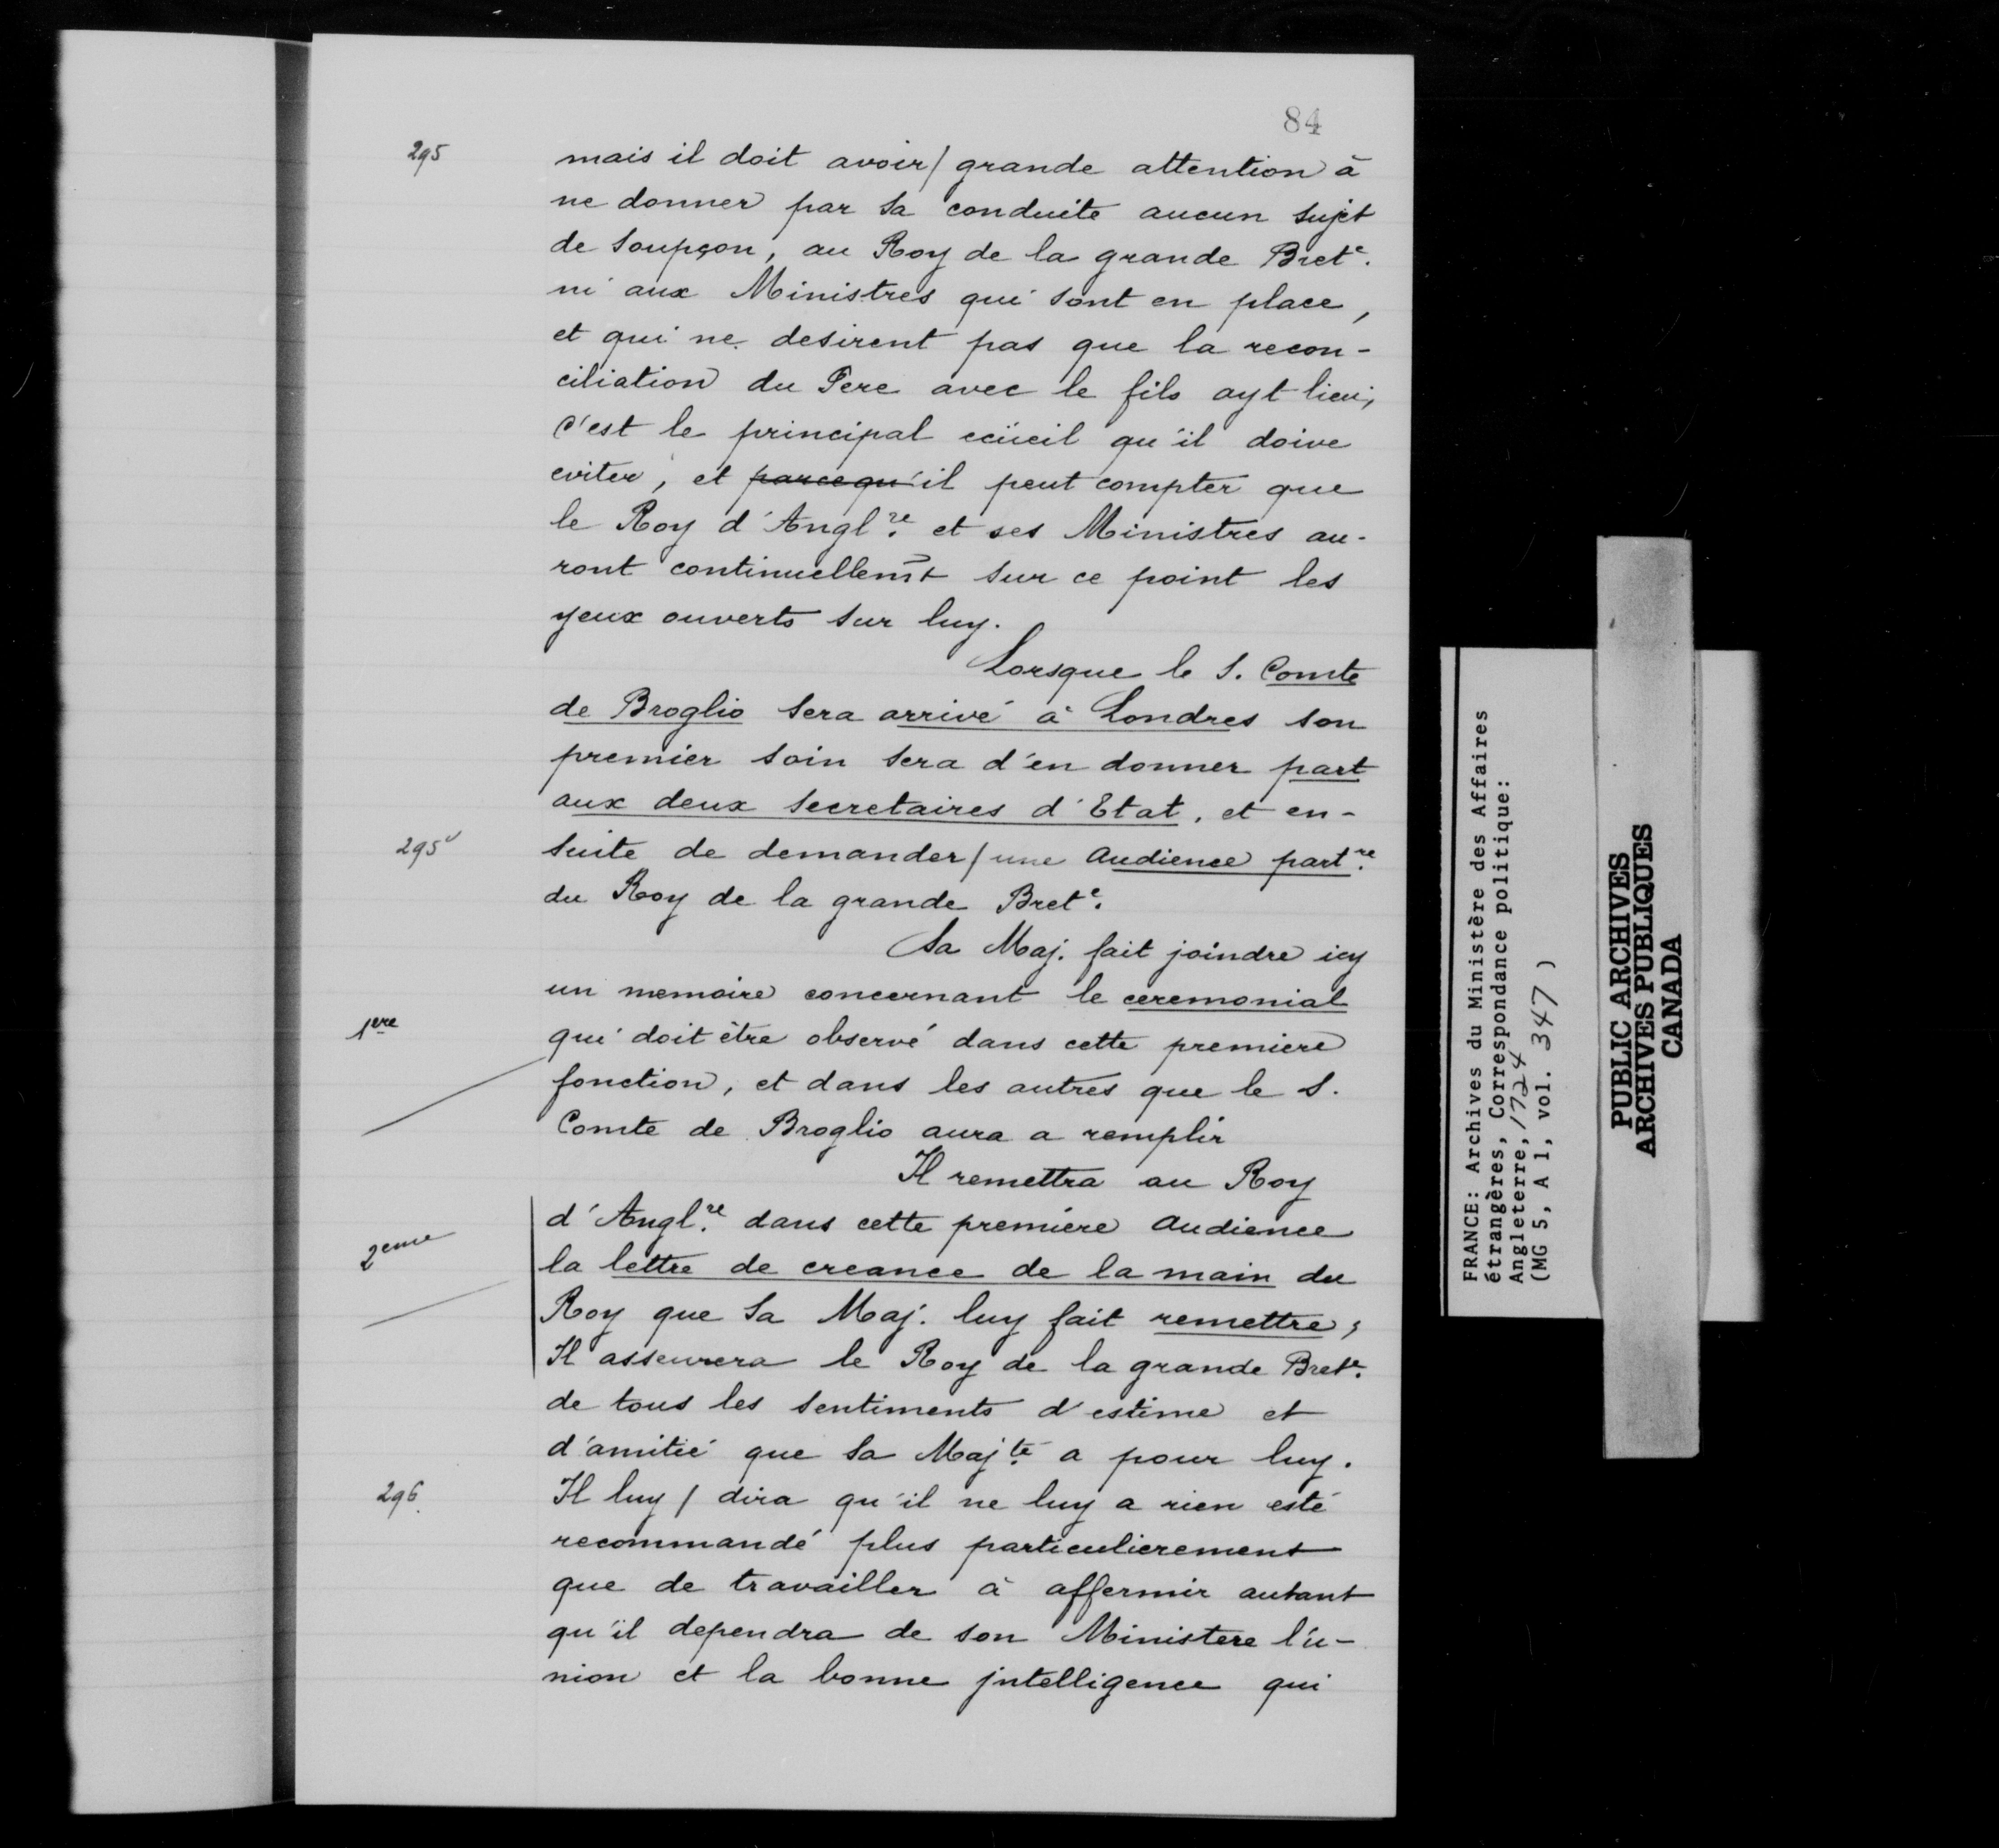 84
295
mais il doit avoir/ grande attention à
ne donner par sa conduite aucun sujet
de soupçon, au Roy de la grande Bret.e
ni aux Ministres qui sont en place,
et qui ne desirent pas que la recon-
ciliation du Pere avec le fils ayt lieu,
c'est le principal ecüeil qu'il doive
eviter, et parcequ'il peut compter que
le Roy d'Angl.re et ses Ministres au-
ront continuellemt sur ce point les
yeux ouverts sur luy.
Lorsque le S. Comte
de Broglio sera arrivé à Londres son
premier soin sera d'en donner part
aux deux secretaires d'Etat, et en-
295v
suite de demander / une audience part.re
du Roy de la grande Bret.e
Sa Maj. fait joindre icy
un memoire concernant le ceremonial
1ere
qui doit être observé dans cette premiere
fonction, et dans les autres que le S.
Comte de Broglio aura a remplir
Il remettra au Roy
2eme
d'Angl.re dans cette première audience
la lettre de creance de la main du
Roy que Sa Maj. luy fait remettre,
Il asseurera le Roy de la grande Bret.e
de tous les sentiments d'estime et
d'amitié que Sa Maj.té a pour luy.
296.
Il luy / dira qu'il ne luy a rien esté
recommandé plus particulierement
que de travailler à affermir autant
qu'il dependra de son Ministere l'u-
nion et la bonne jntelligence qui
FRANCE: Archives du Ministère des Affaires
étrangères, Correspondance politique:
Angleterre, 1724
(MG 5, A 1, vol. 347 )
PUBLIC ARCHIVES
ARCHIVES PUBLIQUES
CANADA